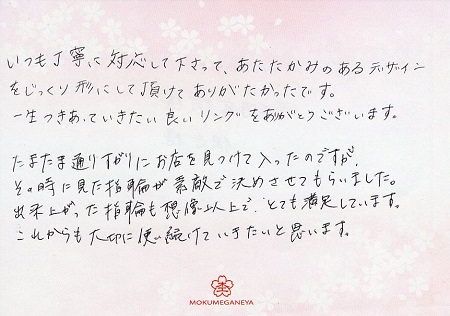 いつも丁寧に対応して下さって、あたたかみのあるデザイン
をじっくり形にして頂けてありがたかったです。
一生つきあっていきたい良いリングをありがとうございます。
たまたま通り下がりにお店を見つけて入ったのですが、
その時に見た指輪が素敵で決めさせてもらいました。
出来上がった指輪も想像以上で、とても満足しています。
これからも大切に使い続けていきたいと思います。
MOKUMEGANEYA